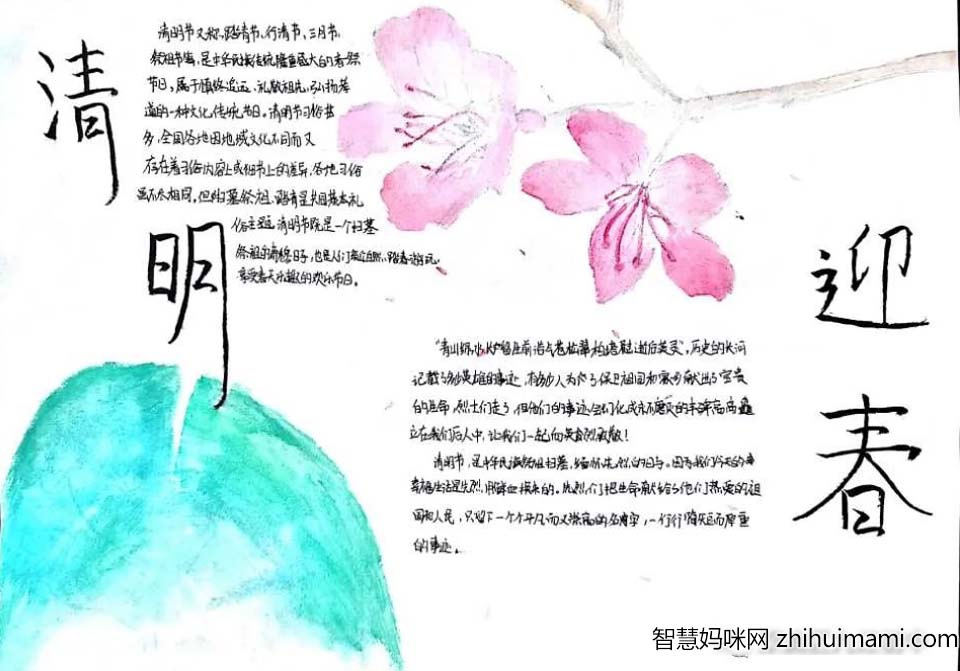 清
明
清明节又称踏青节、行清节、三月节、
祭祖节等,是中华民族传统隆重盛大的春祭
节日,属于慎终追远、礼敬祖先、弘扬孝
道的一种文化传统节日。清明节习俗丰
多,全国各地因地域文化不同而又
存在着习俗内容上或细节上的差异,各地习俗
虽不尽相同,但扫墓祭祖、踏青是共同基本礼
俗主题。清明节既是一个扫墓
祭祖的肃穆日子,也是人们亲近自然、踏青游玩、
享受春天乐趣的欢乐节日。
迎
春
历史的长河
记载了多少英雄的事迹,有多少人为了保卫祖国和家乡献出了宝贵
的生命,烈士们走了,但他们的事迹会
立在我们后人中,让我们一起向英雄烈致敬!
清明节,是中华民族祭祖扫墓,缅怀先烈的日与。因为我们今天的幸
幸福生活是先烈用鲜血换来的。先烈们把生命献给了他们热爱的祖
国和人民,只留下一个个平凡而又崇高的名字,一行行简短而厚重
的事迹。
智慧妈咪网 zhihuimami.com